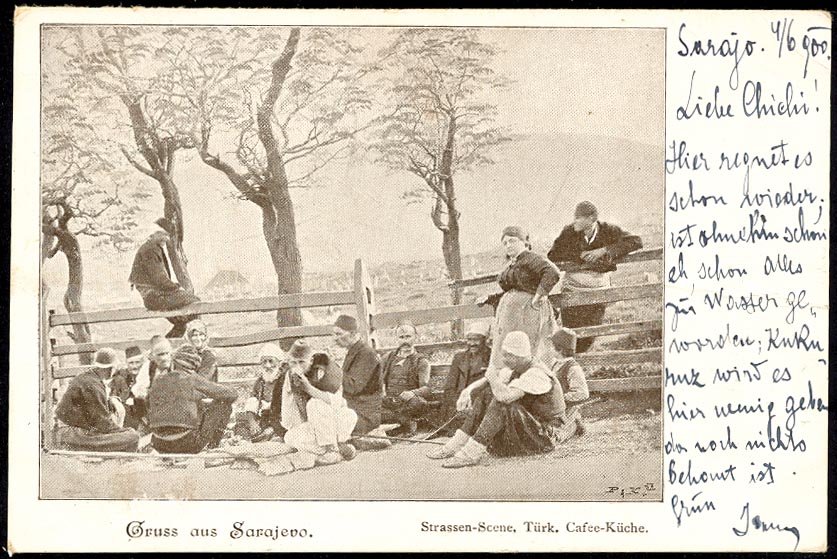 Sarajo. 4/6 900.
Liebe Chichi!
Hier regnet es
schon wieder,
ist ohnehin schon
eh schon Alles
zu Wasser ge„
worden; Kuku„
ruz wird es
hier wenig geben
da noch nichts
bebaut ist.
Grün
Gruss aus Sarajevo.
Strassen-Scene, Türk. Cafee-Küche.